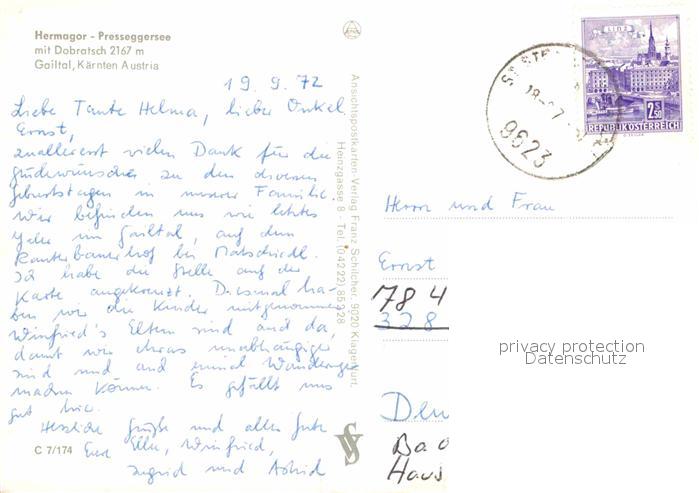 Hermagor - Presseggersee
mit Dobratsch 2167 m
Gailtal, Kärnten Austria
19.9.72
Liebe Tante Helma, lieber Onkel
Ernst,
zuallererst vielen Dank für die
Glückwünsche zu den diversen
Geburtstagen in unserer Familie.
Wir befinden uns wie letztes
Jahr im Gailtal, auf dem
bei Matschiedl.
Ich habe die Stelle auf der
Karte angekreuzt. Diesmal ha-
ben wir die Kinder mitgenommen
Winfried's Eltern sind auch da,
damit wir etwas unabhängiger
sind und auch einmal Wanderungen
machen können. Es gefällt uns
gut hier.
Herzliche Grüße und alles Gute
Eure Elke, Winfried,
Ingrid und Astrid
C 7/174
Ansichtspostkarten-Verlag Franz Schilcher, 9020 Klagenfurt,
Heinzgasse 8 - Tel. (04222) 85928
LINZ
2.50
REPUBLIK ÖSTERREICH
9623
Herrn und Frau
Ernst
784
328
privacy protection
Datenschutz
Bad
Haus